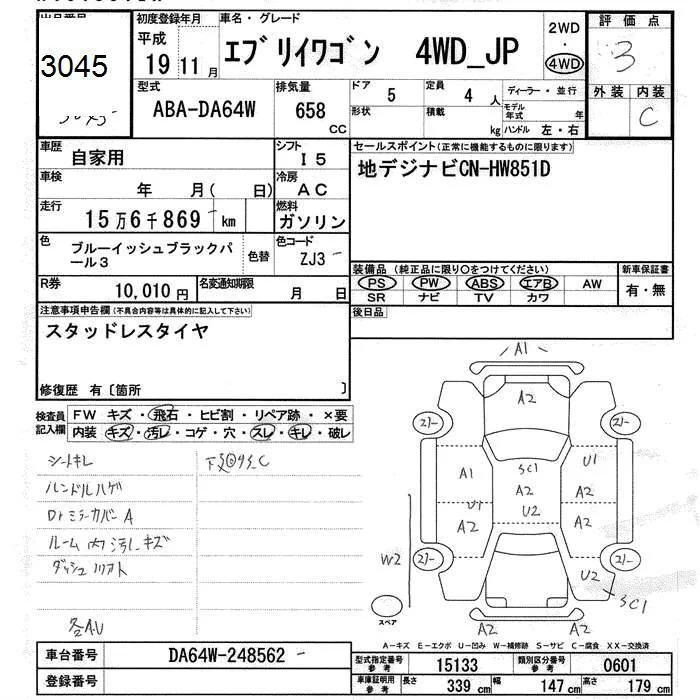 初度登録年月 車名・グレード 評価点
3045
平成
19 11月
エブリイワゴン 4WD_JP
2WD
・
4WD
3
外装 内装
C
型式 排気量 ドア 5 定員 4 人 ディーラー・並行
ABA-DA64W 658 CC
形状 積載 kg モデル年式 年
ハンドル 左・右
車歴 自家用 シフト I5
セールスポイント(正常に機能するものに限ります)
地デジナビCN-HW851D
車検 年 月( 日) 冷房 AC
走行 15万6千869 km 燃料 ガソリン
色 ブルーイッシュブラックパール3 色替 色コード ZJ3
装備品(純正品に限り○をつけてください) 新車保証書
PS PW ABS エアB AW 有・無
SR ナビ TV カワ
R券 10,010円 名変通知期限 月 日
後日品
注意事項申告欄(不具合内容等は具体的に記入して下さい)
スタッドレスタイヤ
修復歴 有〔箇所 〕
検査員記入欄 FW キズ・飛石・ヒビ割・リペア跡・×要
内装 キズ・汚レ・コゲ・穴・スレ・キレ・破レ
シートキレ
ハンドルハゲ
Drミラーカバー A
ルーム内汚レキズ
各AU
A1
A2
SC1
A2
U2
A1
U1
A2
U1
A2
A2
W2
U2
SC1
A2 A2
スペア
A-キズ E-エクボ U-凹み W-補修跡 S-サビ C-腐食 XX-交換済
車台番号 DA64W-248562
登録番号
型式指定番号 参考 15133 類別区分番号 参考 0601
車庫証明用 参考 長さ 339cm 幅 147cm 高さ 179cm